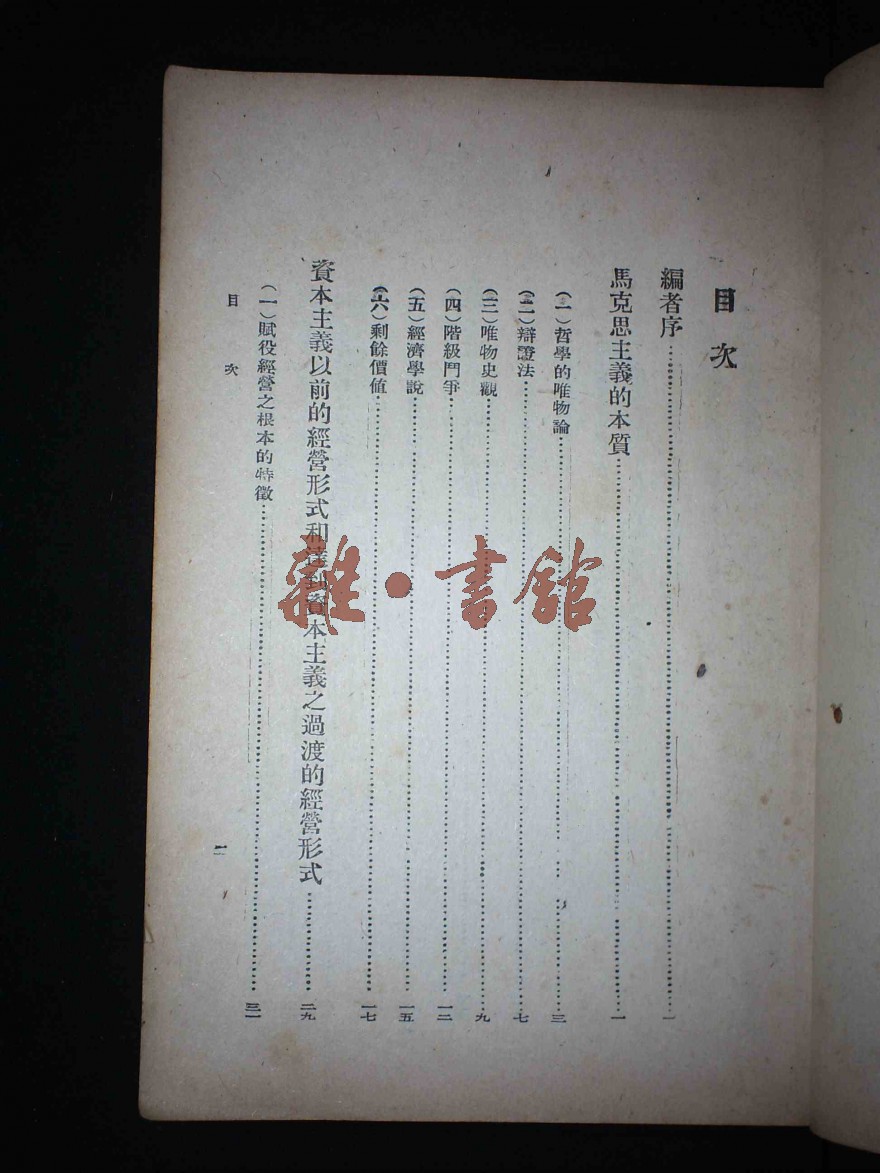 目次
編者序⋯⋯一
馬克思主義的本質⋯⋯一
（一）哲學的唯物論⋯⋯三
（二）辯證法⋯⋯七
（三）唯物史觀⋯⋯九
（四）階級鬥爭⋯⋯一二
（五）經濟學說⋯⋯一五
（六）剩餘價值⋯⋯一七
資本主義以前的經營形式和達到資本主義之過渡的經營形式⋯⋯二九
（一）賦役經營之根本的特徵⋯⋯三一
目次
雜·書館